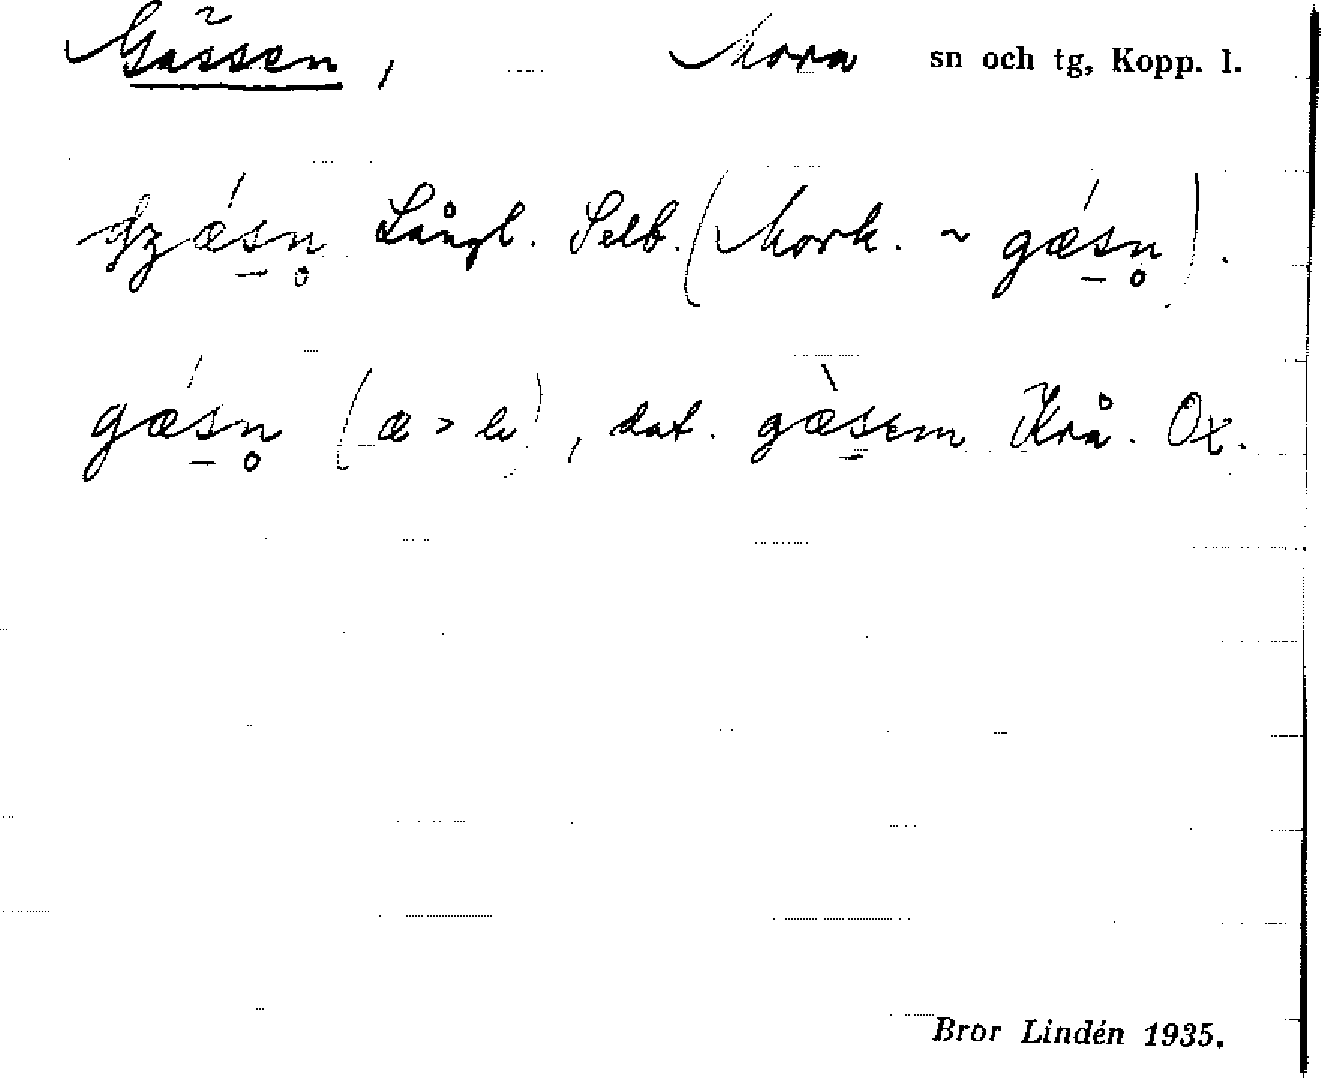 Gässen, Mora sn och tg, Kopp. l.
Långl. Selb. (Mork. ~ gǽs̠n̥).
gǽs̠n̥ (æ > e), dat. gæ̀s̠em Krå. Ox.
Bror Lindén 1935.